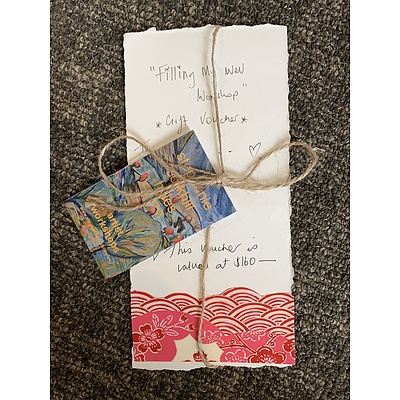 "Filling My Well
Workshop"
*Gift Voucher*
This voucher is
valued at $160—
artist
workshop